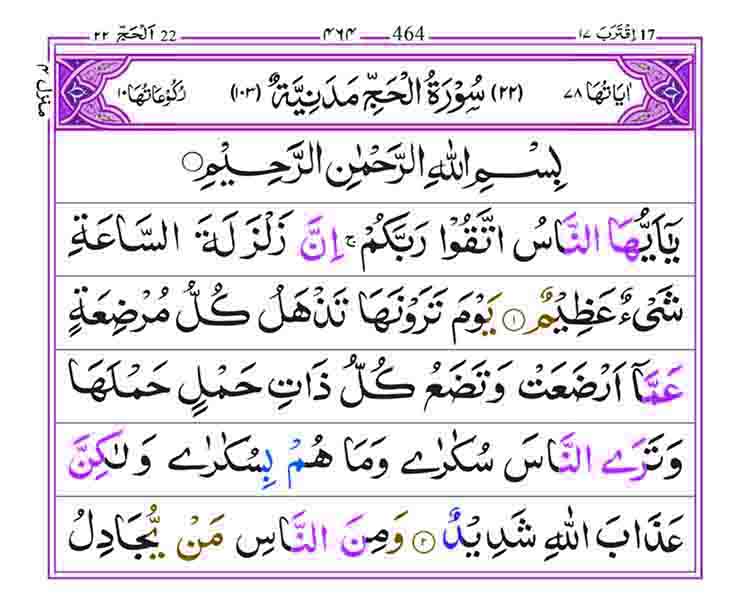 22 اَلْحَجّ ٢٢ ٤٦٤ 464 17 اِقْتَرَبَ ١٧
منزل ٤
اٰیَاتُهَا ٧٨ (٢٢) سُوْرَةُ الْحَجِّ مَدَنِیَّةٌ (١٠٣) رُكُوْعَاتُهَا ١٠
بِسْمِ اللّٰهِ الرَّحْمٰنِ الرَّحِیْمِ
یٰۤاَیُّهَا النَّاسُ اتَّقُوْا رَبَّكُمْ ۚ اِنَّ زَلْزَلَةَ السَّاعَةِ
شَیْءٌ عَظِیْمٌ ۝١ یَوْمَ تَرَوْنَهَا تَذْهَلُ كُلُّ مُرْضِعَةٍ
عَمَّاۤ اَرْضَعَتْ وَتَضَعُ كُلُّ ذَاتِ حَمْلٍ حَمْلَهَا
وَتَرَی النَّاسَ سُكٰرٰی وَمَا هُمْ بِسُكٰرٰی وَلٰكِنَّ
عَذَابَ اللّٰهِ شَدِیْدٌ ۝٢ وَمِنَ النَّاسِ مَنْ یُّجَادِلُ